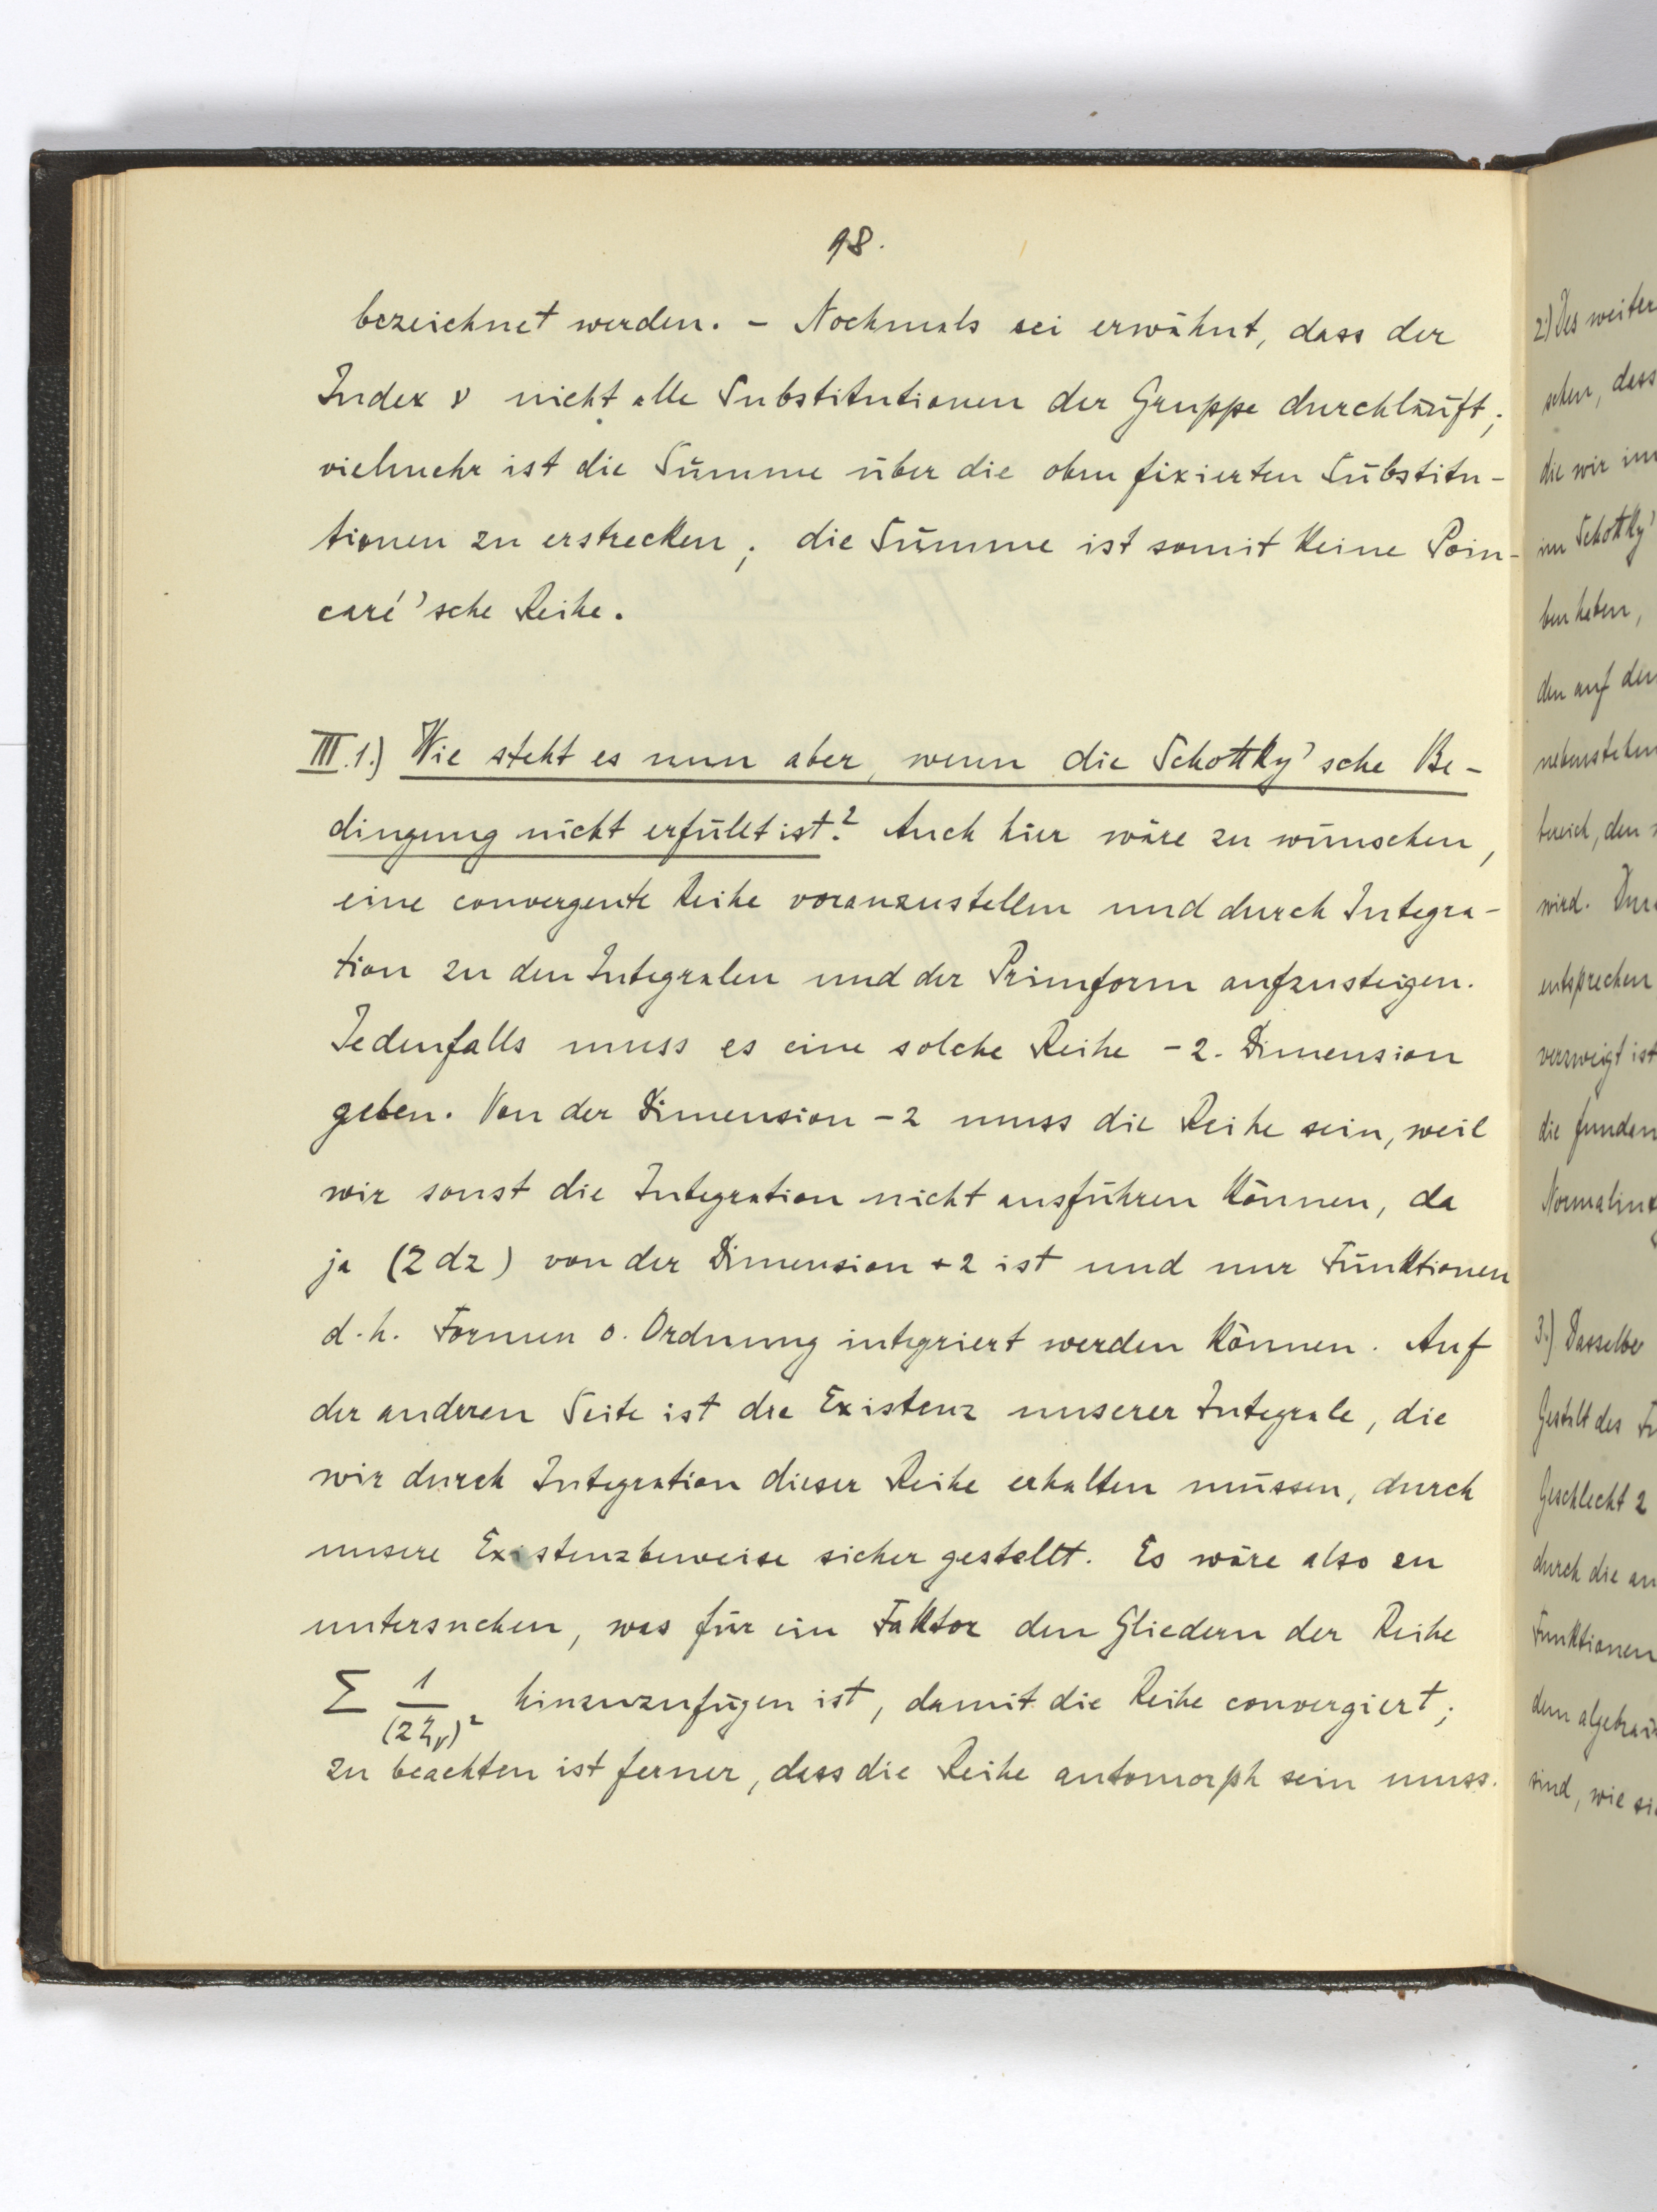 98.
bezeichnet werden. – Nochmals sei erwähnt, dass der
Index ν nicht alle Substitutionen der Gruppe durchläuft;
vielmehr ist die Summe über die oben fixierten Substitu-
tionen zu erstrecken; die Summe ist somit keine Poin-
caré'sche Reihe.
III.1.) Wie steht es nun aber, wenn die Schottky'sche Be-
dingung nicht erfüllt ist? Auch hier wäre zu wünschen,
eine convergente Reihe voranzustellen und durch Integra-
tion zu den Integralen und der Primform aufzusteigen.
Jedenfalls muss es eine solche Reihe -2. Dimension
geben. Von der Dimension -2 muss die Reihe sein, weil
wir sonst die Integration nicht ausführen können, da
ja (z dz) von der Dimension +2 ist und nur Funktionen
d.h. Formen 0. Ordnung integriert werden können. Auf
der anderen Seite ist die Existenz unserer Integrale, die
wir durch Integration dieser Reihe erhalten müssen, durch
unsere Existenzbeweise sicher gestellt. Es wäre also zu
untersuchen, was für ein Faktor den Gliedern der Reihe
Σ 1/(z ζν)² hinzuzufügen ist, damit die Reihe convergiert;
zu beachten ist ferner, dass die Reihe automorph sein muss.
2.) Des weiter
sehen, dass
die wir im
im Schottky'
ben haben,
den auf den
nebenstehen
bereich, den
wird.
entsprechen
verzweigt ist
die fundam
3.) Dasselbe
Gestalt des
Geschlecht 2
durch die an
Funktionen
dem algebrai
sind, wie si